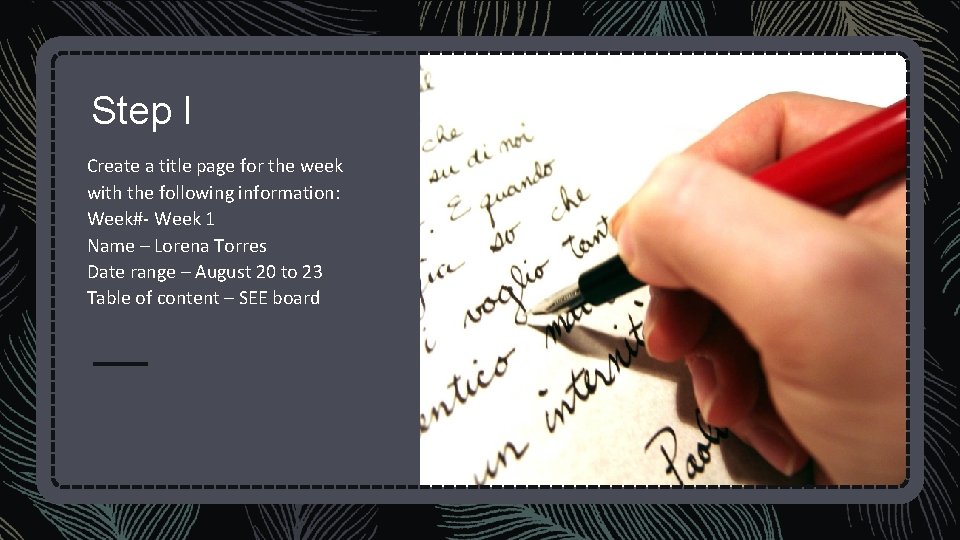 Step I
Create a title page for the week
with the following information:
Week#- Week 1
Name – Lorena Torres
Date range – August 20 to 23
Table of content – SEE board
che
su di noi
E quando
so che
voglio tant
entico
un interniti
Paol